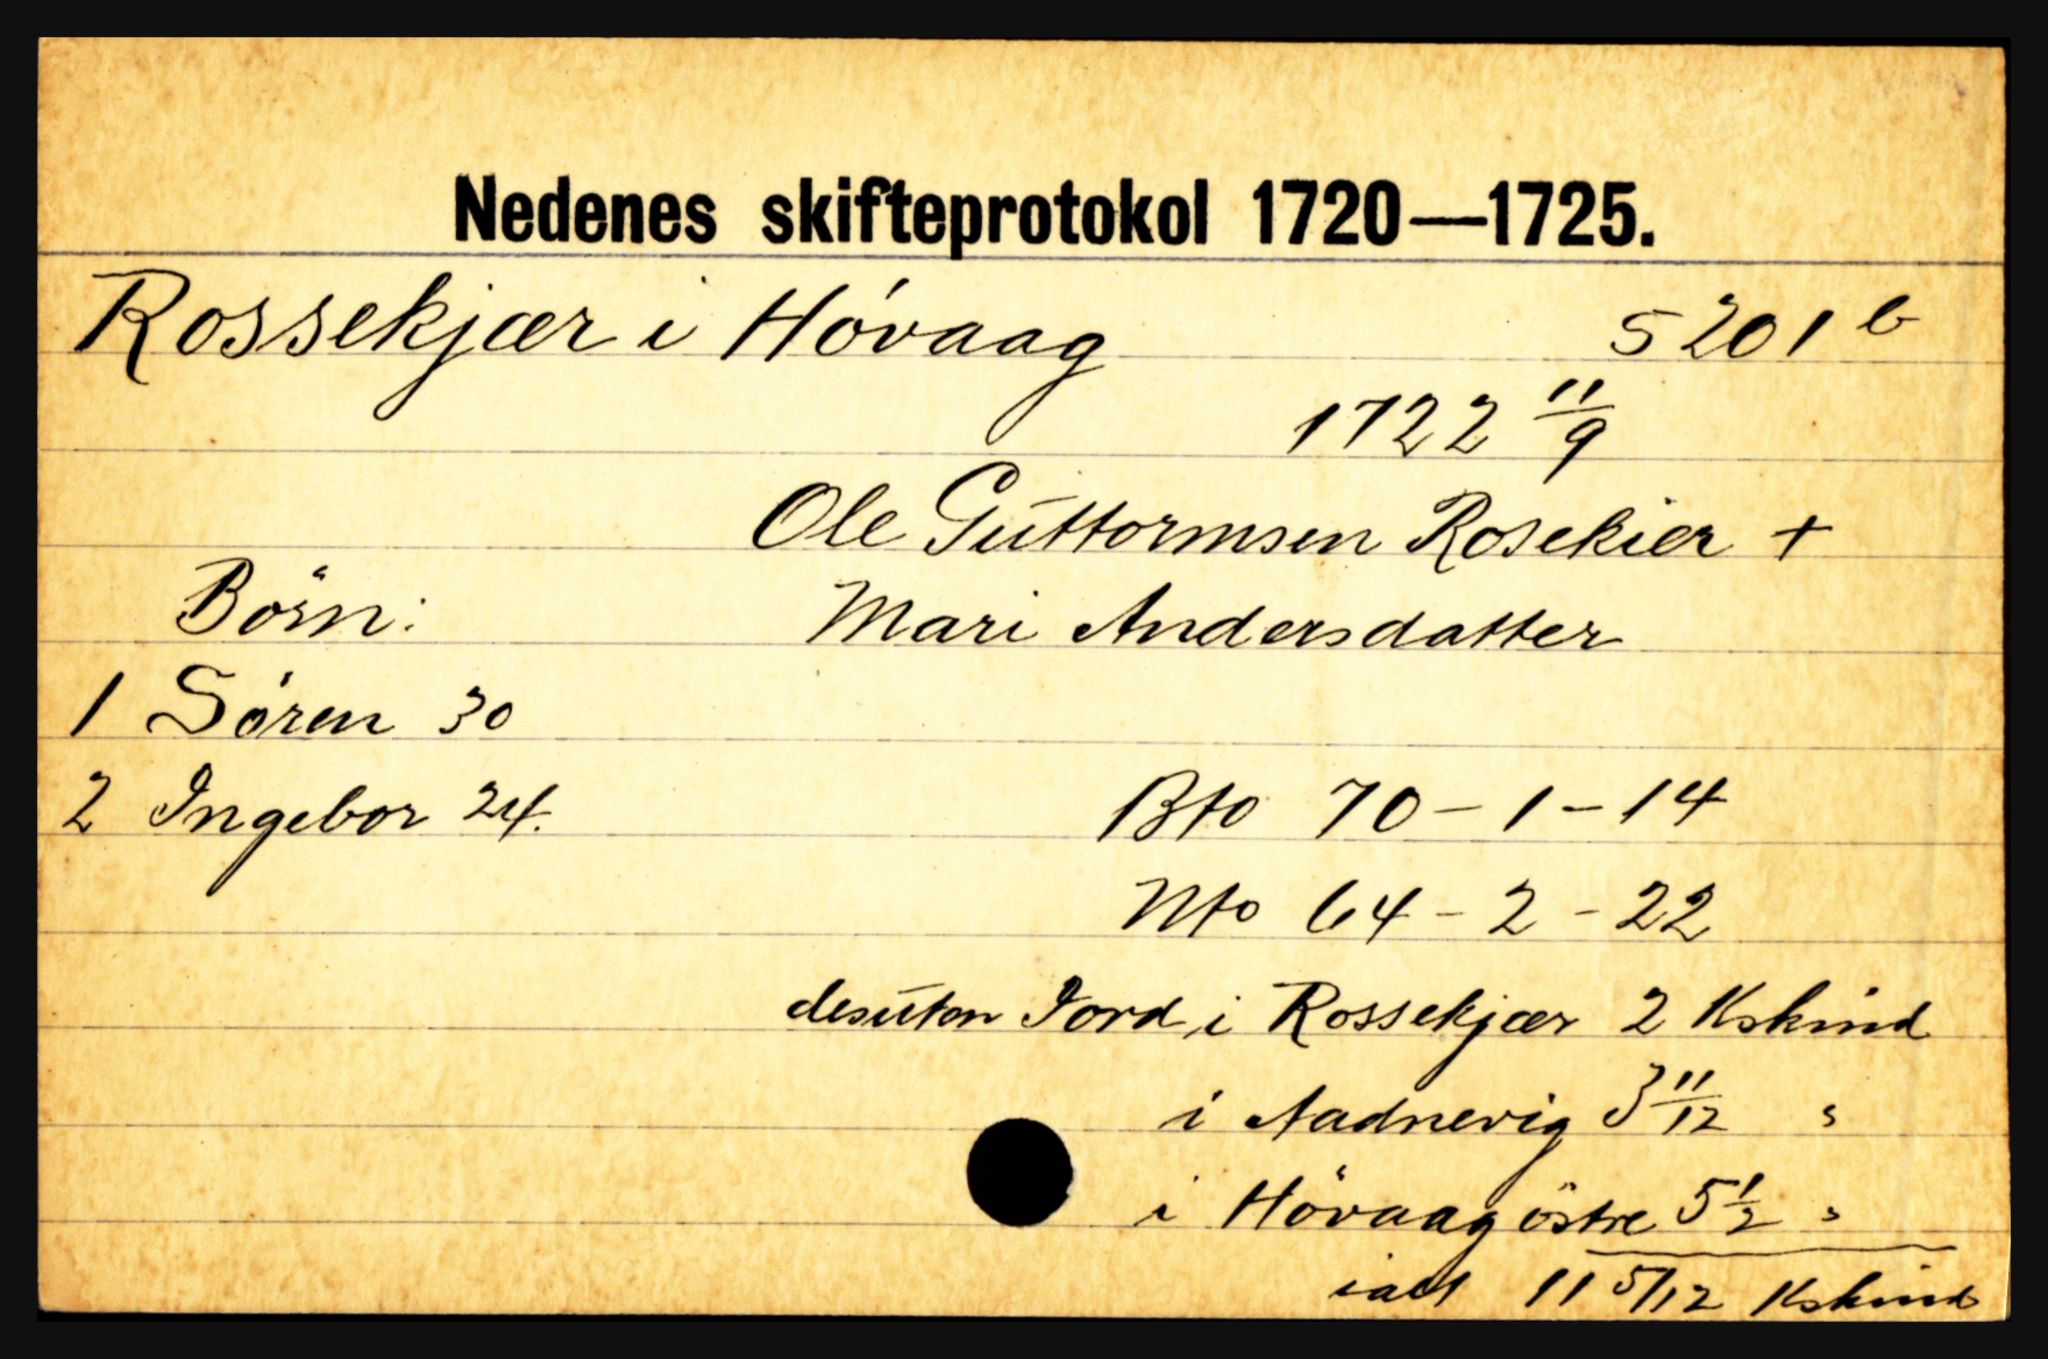 Nedenes skifteprotokol 1720—1725.
Rossekjær i Hövaag 5201 b
1722 11/9
Ole Guttormsen Rosekier +
Börn: Mari Andersdatter
1 Sören 30
2 Ingebor 24.
Bto 70 - 1 - 14
Nto 64 - 2 - 22
desuten Jord i Rossekjær 2 Kskind
i Aadnevig 3 11/12 "
i Hövaag östre 5 1/2 "
ialt 11 5/12 Kskind